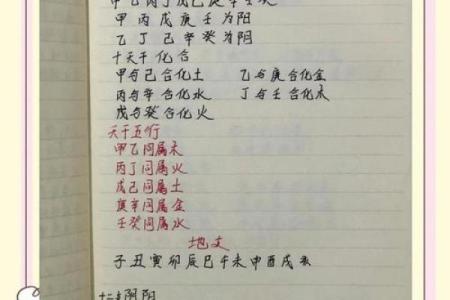 甲乙丙丁戊己庚辛壬癸
甲丙戊庚壬为阳
乙丁己辛癸为阴
十天干化合
甲与己合化土 乙与庚合化金
丙与辛合化水 丁与壬合化木
戊与癸合化火
天干五行
甲乙同属木
丙丁同属火
戊己同属土
庚辛同属金
壬癸同属水
地支
子丑寅卯辰巳午未申酉戌亥
十二支阴阳